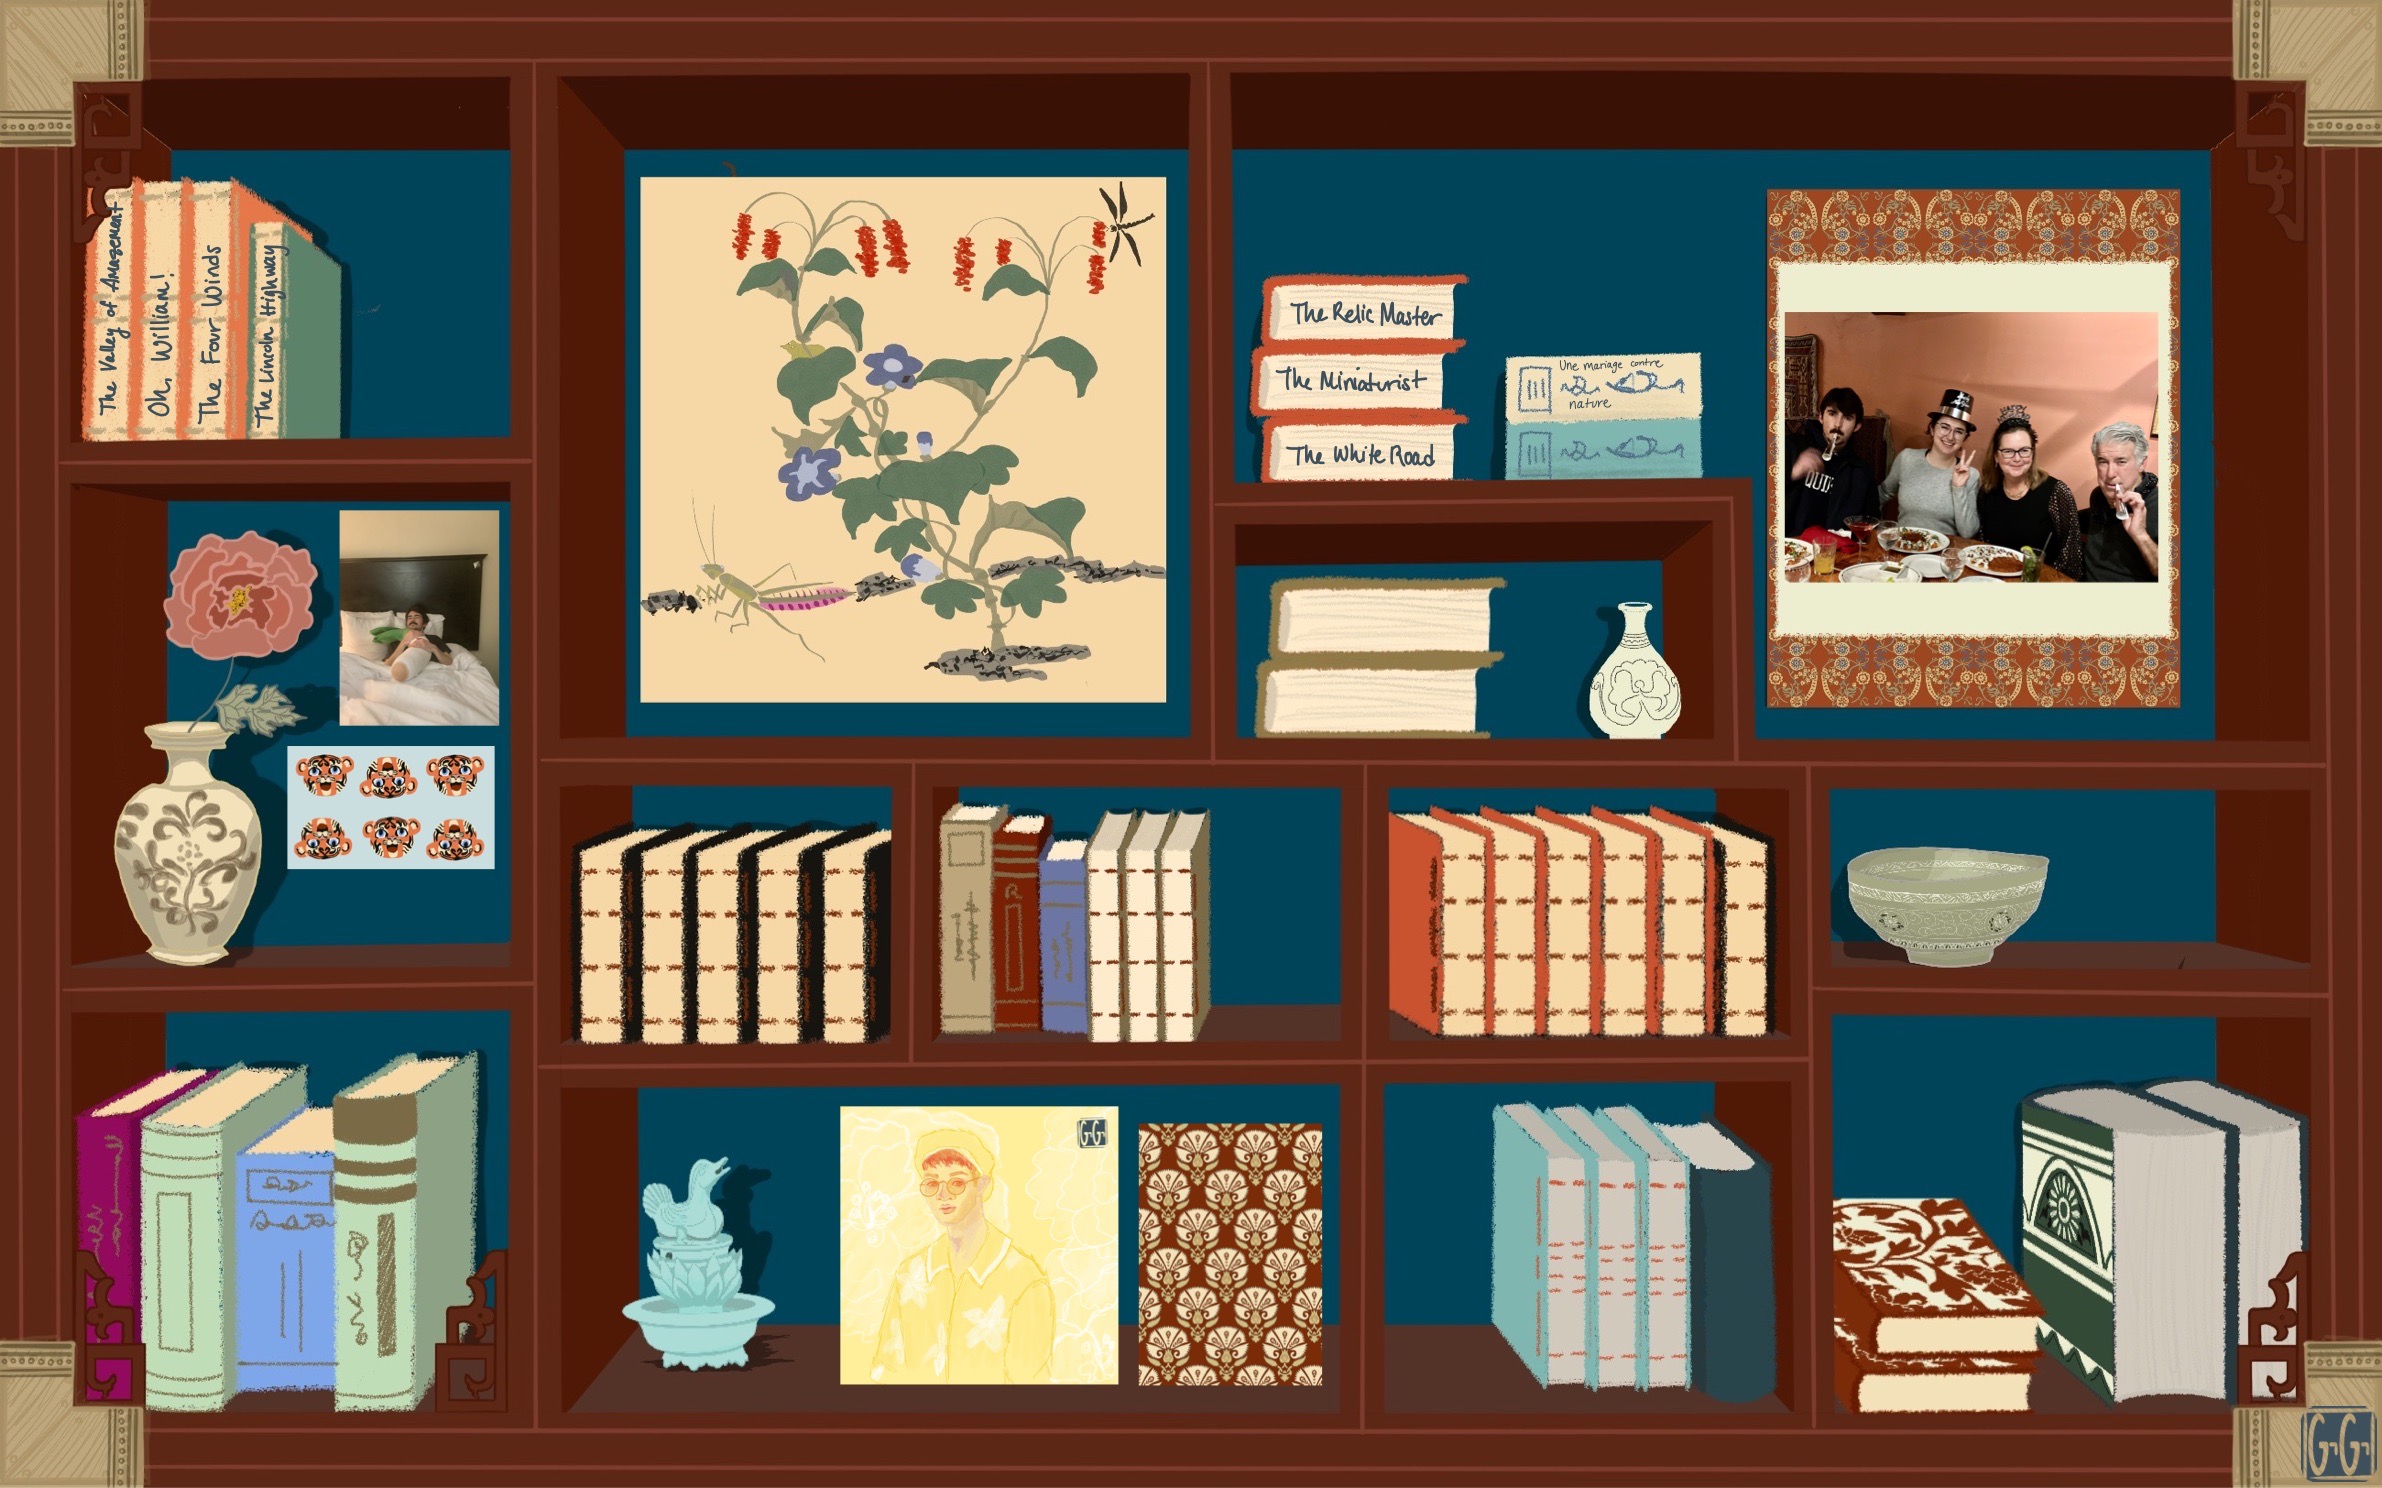 The Valley of Amazement
Oh, William!
The Four Winds
The Lincoln Highway
The Relic Master
The Miniaturist
The White Road
Une mariage contre
nature
GG
GG